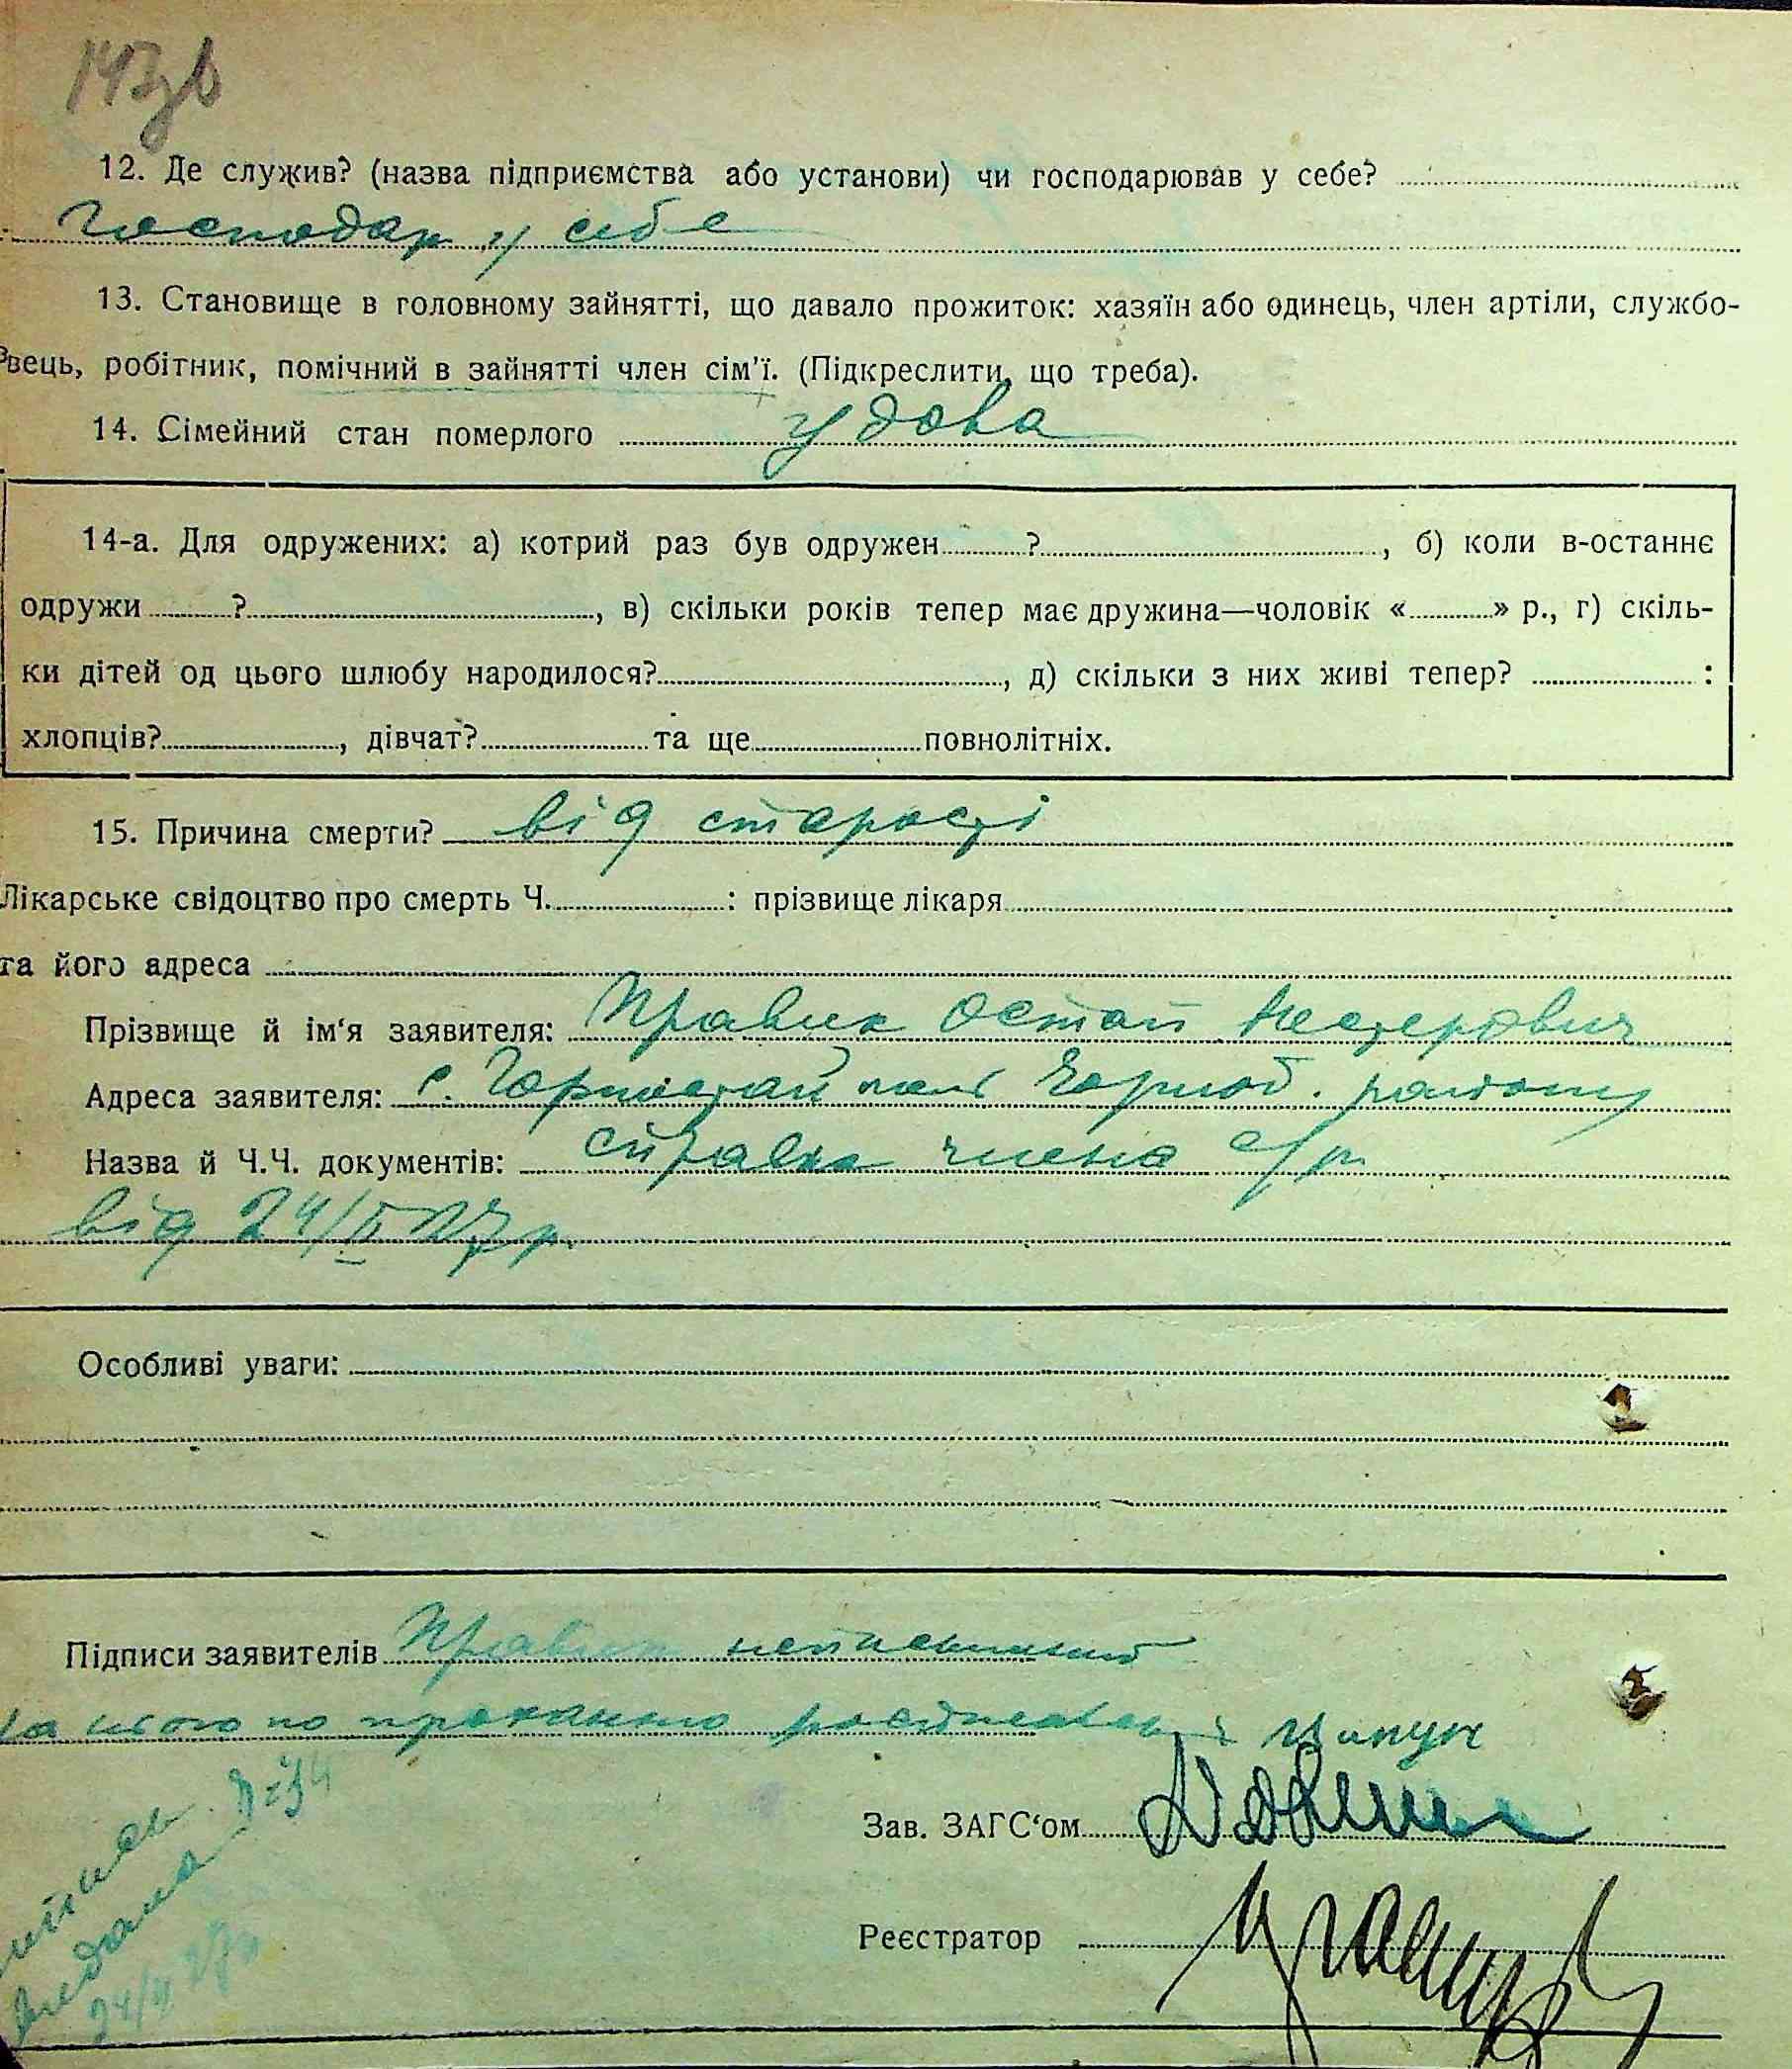 143зв
12. Де служив? (назва підприємства або установи) чи господарював у себе?
господар у себе
13. Становище в головному зайнятті, що давало прожиток: хазяїн або одинець, член артіли, службо-
вець, робітник, помічний в зайнятті член сім'ї. (Підкреслити, що треба).
14. Сімейний стан померлого удова
14-а. Для одружених: а) котрий раз був одружен ? , б) коли в-останнє
одружи ? , в) скільки років тепер має дружина—чоловік « » р., г) скіль-
ки дітей од цього шлюбу народилося? , д) скільки з них живі тепер? :
хлопців? , дівчат? та ще повнолітніх.
15. Причина смерти? від старості
Лікарське свідоцтво про смерть Ч. : прізвище лікаря
та його адреса
Прізвище й ім'я заявителя: Правик Остап Нестерович
Адреса заявителя: с. Горностайпіль Чорноб. району
Назва й Ч.Ч. документів: справка члена с/р
від 24/II 27 р.
Особливі уваги:
Підписи заявителів Правик неписьменний
за нього по проханню росписався
Зав. ЗАГС'ом
Реєстратор
24/II 27р